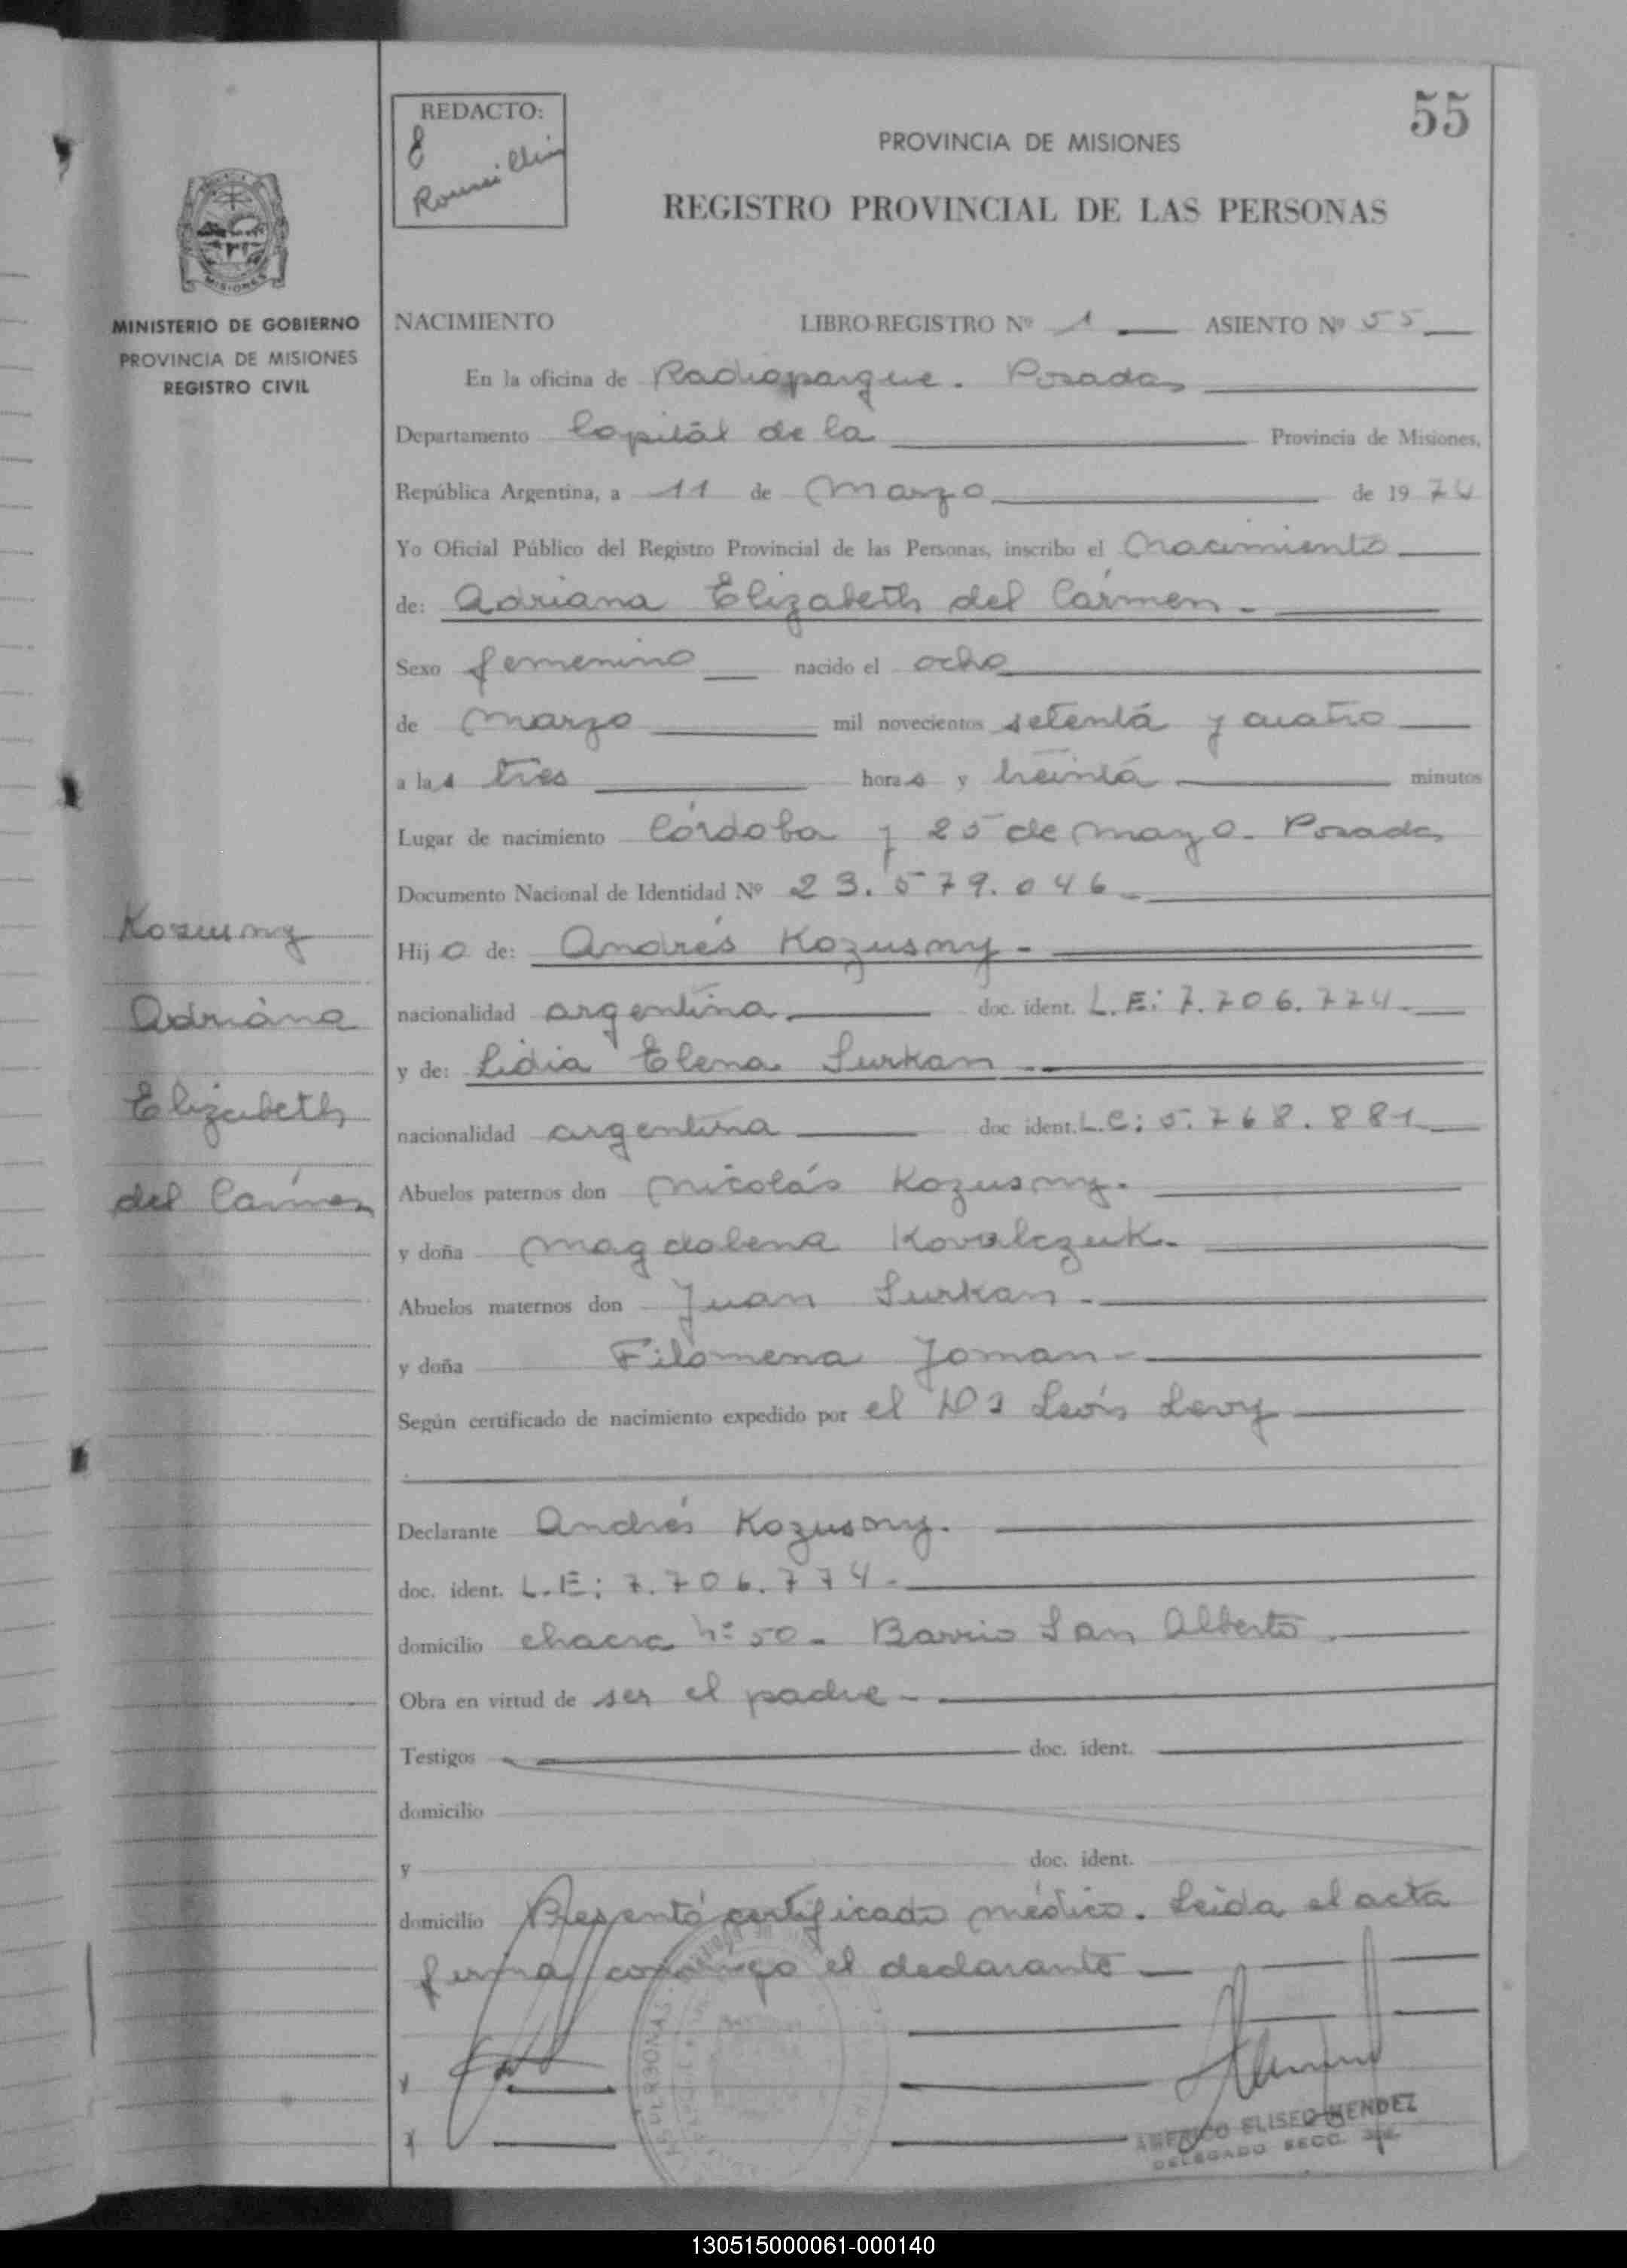 55
REDACTO:
PROVINCIA DE MISIONES
REGISTRO PROVINCIAL DE LAS PERSONAS
MISIONES
MINISTERIO DE GOBIERNO
PROVINCIA DE MISIONES
REGISTRO CIVIL
NACIMIENTO LIBRO-REGISTRO Nº 1 ASIENTO Nº 55
En la oficina de Radioparque. Posadas
Departamento Capital de la Provincia de Misiones,
República Argentina, a 11 de Marzo de 1974
Yo Oficial Público del Registro Provincial de las Personas, inscribo el Nacimiento
de: Adriana Elizabeth del Cármen.
Sexo femenino nacido el ocho
de Marzo mil novecientos setenta y cuatro
a las tres horas y treinta minutos
Lugar de nacimiento Córdoba y 25 de Mayo. Posadas
Documento Nacional de Identidad Nº 23.579.046
Hija de: Andrés Kozusny
nacionalidad argentina doc. ident. L.E: 7.706.774
y de: Lidia Elena Surkan
nacionalidad argentina doc ident. L.C: 5.768.881
Abuelos paternos don Nicolás Kozusny.
y doña Magdalena Kovalczuk.
Abuelos maternos don Juan Surkan
y doña Filomena Joman
Según certificado de nacimiento expedido por el Dr León Levy
Declarante Andrés Kozusny.
doc. ident. L.E: 7.706.774
domicilio chacra nº 50 - Barrio San Alberto
Obra en virtud de ser el padre
Testigos doc. ident.
domicilio
y doc. ident.
domicilio Presentó certificado médico. Leida el acta
firma conmigo el declarante
Kozusny
Adriana
Elizabeth
del Cármen
AMERICO ELISEO MENDEZ
DELEGADO SECC.
130515000061-000140